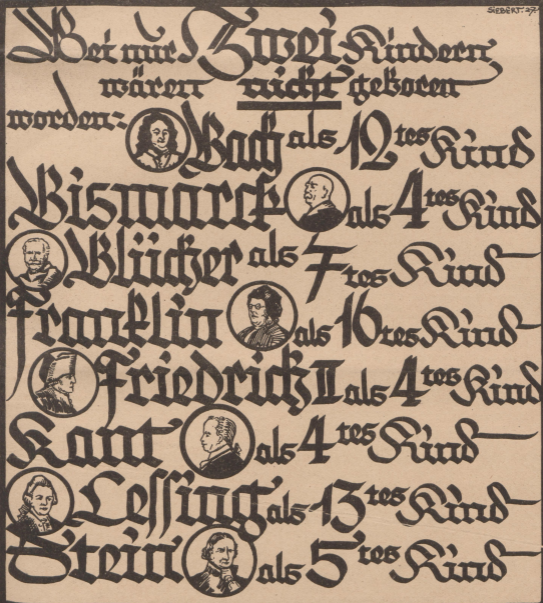 SIEBERT. 27.
Bei nur Zwei Kindern
wären nicht geboren
worden:
Bach als 12tes Kind
Bismarck als 4tes Kind
Blücher als 7tes Kind
Franklin als 16tes Kind
Friedrich II als 4tes Kind
Kant als 4tes Kind
Lessing als 13tes Kind
Stein als 5tes Kind